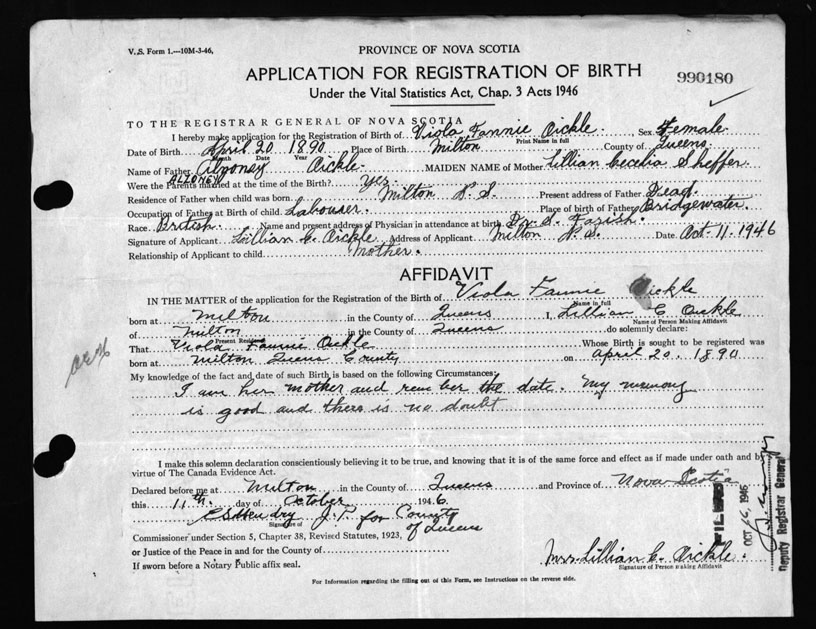 V.S. Form 1.—10M-3-46.
PROVINCE OF NOVA SCOTIA
APPLICATION FOR REGISTRATION OF BIRTH
990180
Under the Vital Statistics Act, Chap. 3 Acts 1946
TO THE REGISTRAR GENERAL OF NOVA SCOTIA
I hereby make application for the Registration of Birth of Viola Fannie Oickle. Sex Female
Print Name in full
Date of Birth April 20 1890 Place of Birth Milton County of Queens.
Month Date Year
Name of Father Oickle MAIDEN NAME of Mother Lillian Cecelia Sheffer.
Were the Parents married at the time of the Birth? Yes.
Residence of Father when child was born Milton N.S. Present address of Father Dead.
Occupation of Father at Birth of child Labourer. Place of birth of Father Bridgewater
Race British. Name and present address of Physician in attendance at birth Dr. S. Farish.
Signature of Applicant Lillian C. Oickle Address of Applicant Milton N.S. Date Oct. 11. 1946
Relationship of Applicant to child Mother.
AFFIDAVIT
IN THE MATTER of the application for the Registration of the Birth of Viola Fannie Oickle
Name in full
born at Milton in the County of Queens I, Lillian C Oickle
Name of Person Making Affidavit
of Milton in the County of Queens do solemnly declare:
Present Residence
That Viola Fannie Oickle Whose Birth is sought to be registered was
born at Milton Queens County on April 20. 1890
My knowledge of the fact and date of such Birth is based on the following Circumstances:
I am her mother and remember the date. My memory
is good and there is no doubt
I make this solemn declaration conscientiously believing it to be true, and knowing that it is of the same force and effect as if made under oath and by
virtue of The Canada Evidence Act.
Declared before me at Milton in the County of Queens and Province of Nova Scotia
this 11th. day of October 1946.
J.P. for County
of Queens
Signature of
Commissioner under Section 5, Chapter 38, Revised Statutes, 1923,
or Justice of the Peace in and for the County of
If sworn before a Notary Public affix seal.
Mrs. Lillian C. Oickle.
Signature of Person Making Affidavit
For Information regarding the filling out of this Form, see Instructions on the reverse side.
FILED
OCT 16 1946
Deputy Registrar General